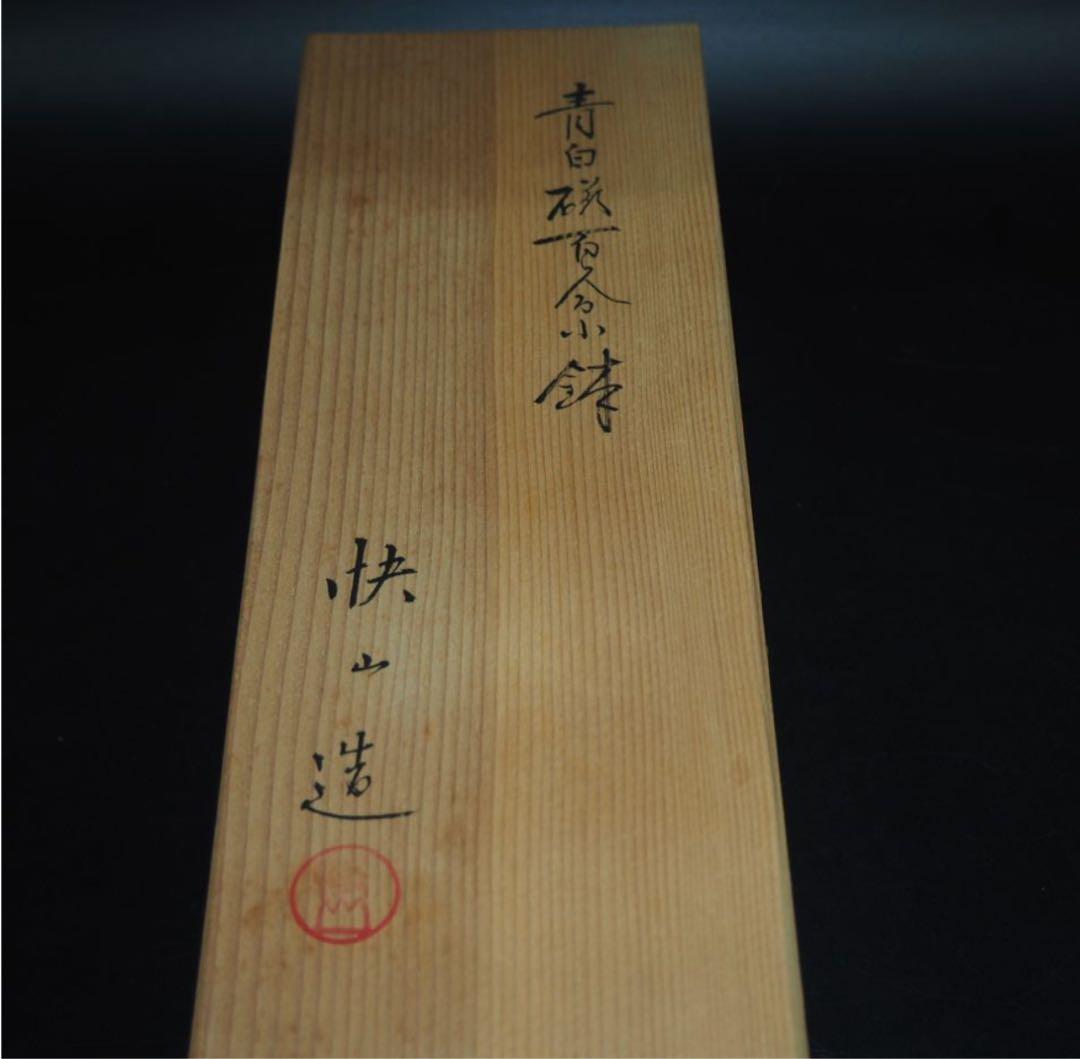 青白磁百合小鉢
快山造